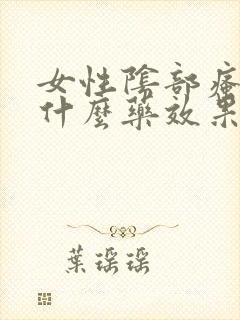 女性陰部瘙
什麼藥效果
葉瑶瑶